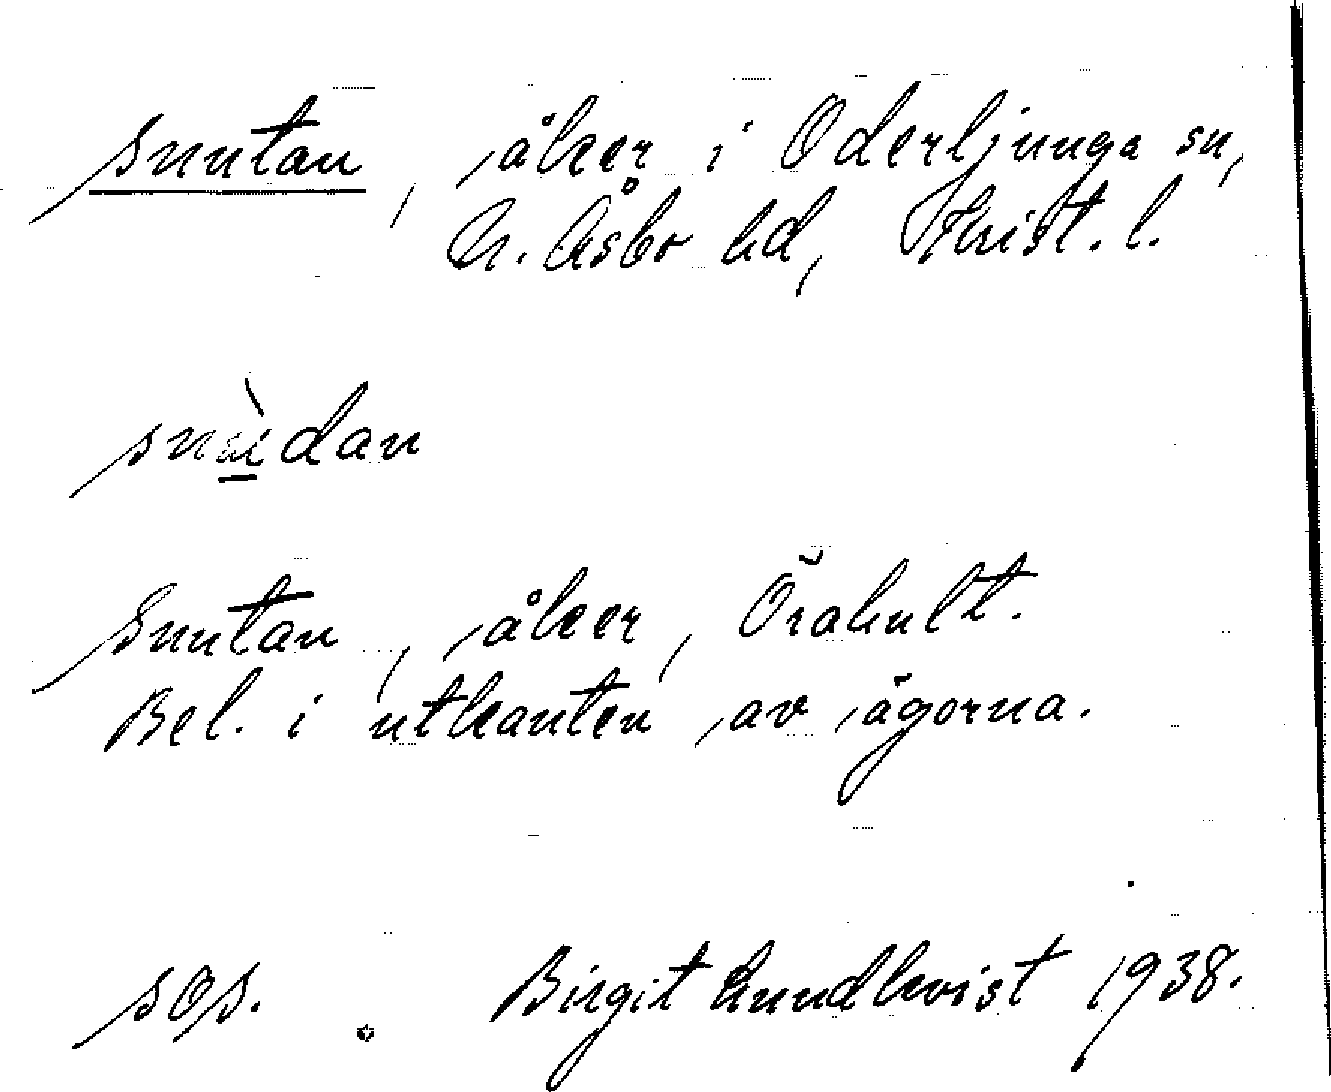 snutan, åker i Oderljunga sn,
N. Åsbo hd, Krist. l.
snùdan
Snutan, åker, Örahult.
Bel. i utkanten av ägorna.
sOs. Birgit Lundkvist 1938.